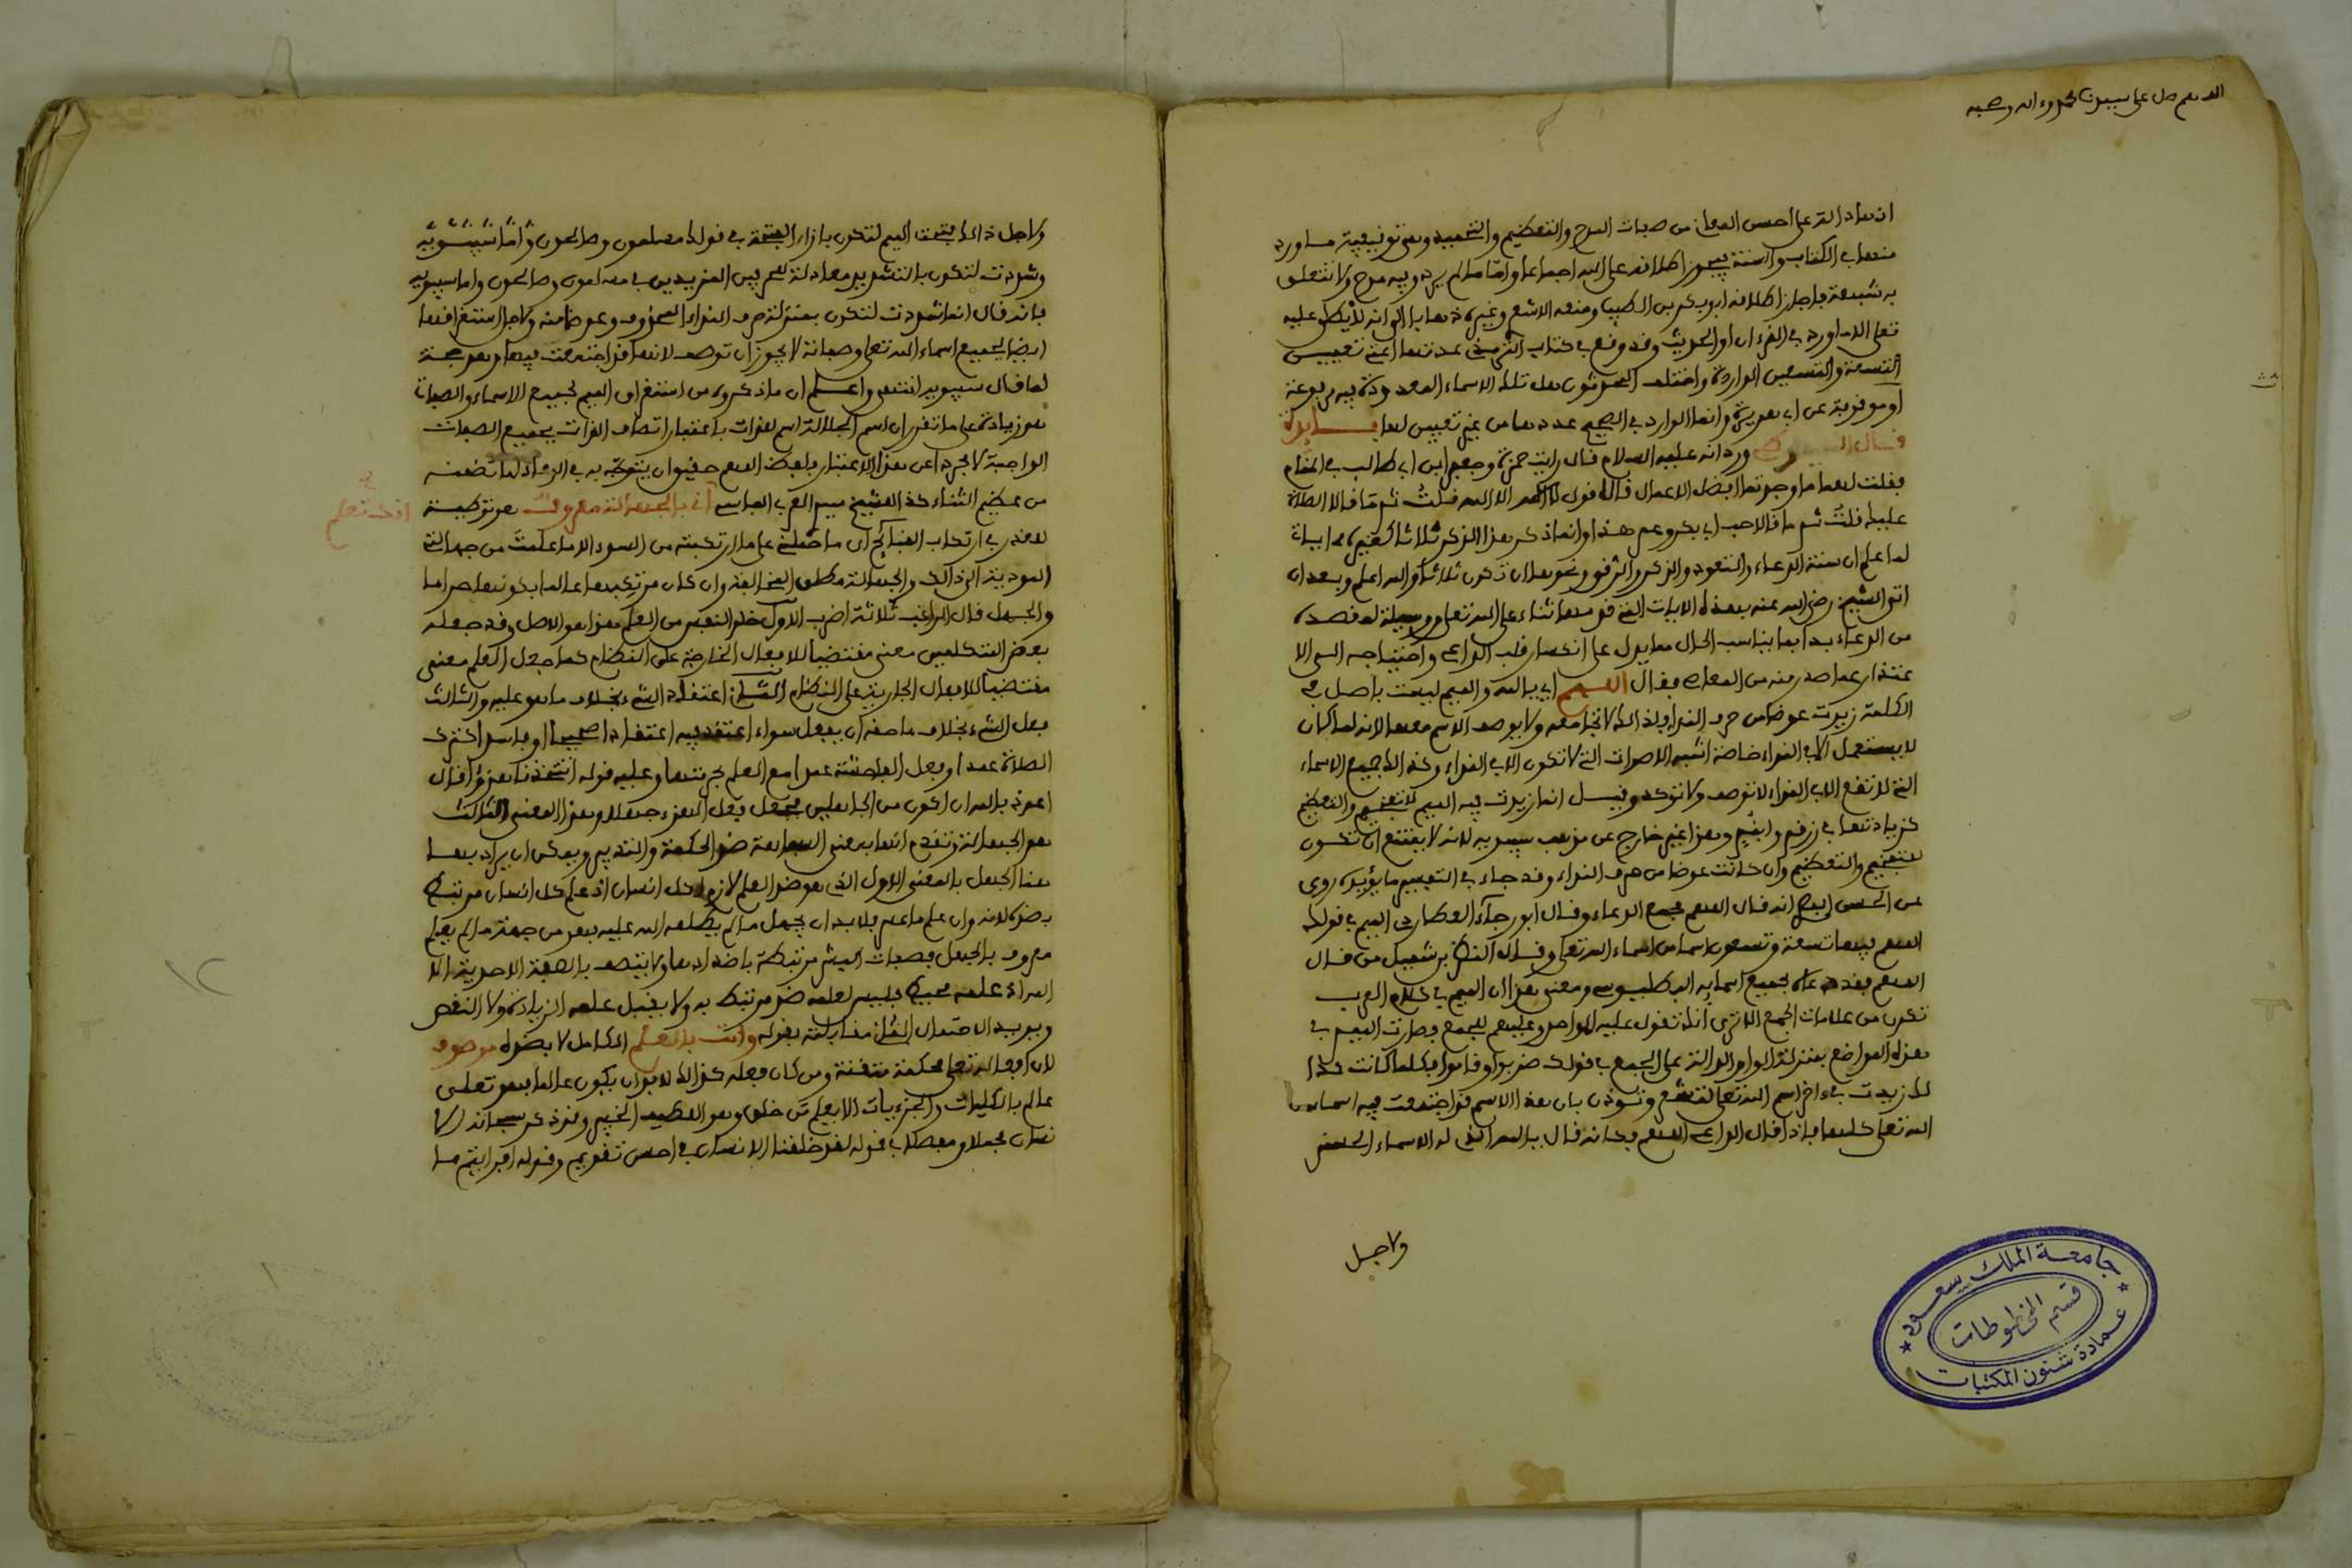 اللهم صل على سيدنا محمد وءاله وصحبه
انها دالة على احسن المعاني من صفات المدح والتعظيم والتحميد وهي توفيقية فما ورد
منها في الكتاب والسنة يجوز اطلاقه على الله اجماعا واما ما لم يرد وفيه مدح ولا تتعلق
به شبهة فاجاز اطلاقه ابو بكر بن الطيب ومنعه الاشعري وغيره ذهابا الى انه لا يطلق عليه
تعلى الا ما ورد في القرءان او الحديث وقد وقع في كتاب الترمذي عدتها اعني تعيين
التسعة والتسعين الواردة واختلف المحدثون هل تلك الاسماء المعدودة فيه مرفوعة
او موقوفة عن ابي هريرة وانما الوارد في الصحيح عددها من غير تعيين لها فايدة
قال ورد انه عليه السلام قال رايت حمزة وجعفر ابن ابي طالب في المنام
فقلت لهما ما وجدتما افضل الاعمال قالا قول لا اله الا الله قلت ثم ما قالا الصلاة
عليك قلت ثم ما قالا حب ابي بكر وعمر هذا وانما ذكر هذا الذكر ثلاثا
لما علم ان سنة الدعاء والتعوذ والذكر ونحوها ان تكون ثلاثا والله اعلم وبعد ان
اتى الشيخ رضي الله عنه بهذه الابيات التي قدمها ثناء على الله تعلى ووسيلة لما قصده
من الدعاء بدا بما يناسب الحال مما يدل على انكسار قلب الداعي واحتياجه الى الا
عتذار عما صدر منه من المعاصي فقال اللهم اي يا الله والميم ليست باصل في
الكلمة زيدت عوضا من حرف النداء ولذلك لا تجامعه ولا يوصف الاسم معها لانه لما كان
لا يستعمل الا في النداء خاصة اشبه الاصوات التي لا تكون الا في النداء وكذلك جميع الاسماء
التي لا تقع الا في النداء لا توصف ولا توكد وقيل انما زيدت فيه الميم للتفخيم والتعظيم
كزيادتها في زرقم وابنم وهذا غير خارج عن مذهب سيبويه لانه لا يمتنع ان تكون
للتفخيم والتعظيم وان كانت عوضا من حرف النداء وقد جاء في التفسير ما يؤيده روى
عن الحسن البصري انه قال اللهم مجمع الدعاء وقال ابو رجاء العطاردي الميم في قولك
اللهم فيها تسعة وتسعون اسما من اسماء الله تعلى وقال النضر بن شميل من قال
اللهم فقد دعاه بجميع اسمايه البطليوسي ومعنى هذا ان الميم في كلام العرب
تكون من علامات الجمع الا ترى انك تقول عليه للواحد وعليهم للجمع فصارت الميم في
هذه المواضع بمنزلة الواو الدالة على الجمع في قولك ضربوا وقاموا فلما كانت كذا
لك زيدت في ءاخر اسم الله تعلى لتشعر وتوذن بان هذا الاسم قد اجتمعت فيه اسماء
الله تعلى كلها فاذا قال الداعي اللهم فكانه قال يا الله الذي له الاسماء الحسنى
ولاجل
جامعة الملك سعود
قسم المخطوطات
عمادة شئون المكتبات
ولاجل ذلك فتحت الميم لتكون بازاء الفتحة في قولك مسلمون وصالحون واما
وشددت لتكون بالتشديد معادلة للحرفين المزيدين في مسلمون وصالحون واما سيبويه
فانه قال انما شددت لتكون بمنزلة حرف النداء المحذوف وعوضا منه ولاجل استغراقها
ايضا لجميع اسماء الله تعلى وصفاته لا يجوز ان توصف لانها قد اجتمعت فيها وهو حجة
لما قال سيبويه انتهى واعلم ان ما ذكروه من استغراق الميم لجميع الاسماء والصفات
هو زيادة على ما تقرر ان اسم الجلالة اسم للذات باعتبار اتصاف الذات بجميع الصفات
الواجبة لا مجردا عن هذا الاعتبار فلفظ اللهم حقيق ان يتوجه به في لما تضمنه
من عظيم الثناء كذا للشيخ سيدي العربي الفاسي اني بالجهالة معروف هو توطية
افك تعلم
لعذره في ارتكاب القبائح اي ما حملني على ما ارتكبته من السوء الا ما علمت من جهالتي
المودية الى ذلك والجهالة مطلق المخالفة وان كان مرتكبها عالما بكونها حراما
والجهل قال الراغب ثلاثة اضرب الاول خلو النفس من العلم هذا هو الاصل وقد جعله
بعض المتكلمين معنى مقتضيا للافعال الخارجة على النظام كما جعل العلم معنى
مقتضيا للافعال الجارية على النظام الثاني اعتقاد الشيء بخلاف ما هو عليه والثالث
فعل الشيء بخلاف ما حقه ان يفعل سواء اعتقد فيه اعتقادا صحيحا او فاسدا كترك
الصلاة عمدا وفعل الفاحشة عمدا مع العلم بحرمتها وعليه قوله اتتخذنا هزؤا قال
اعوذ بالله ان اكون من الجاهلين فجعل فعل الهزء جهلا وهذا المعنى الثالث
هو الجهالة وتقدم انها بمعنى السفاهة ضد الحكمة والتدبير ويمكن ان يراد بها
هنا الجهل بالمعنى الاول الذي هو ضد العلم لازم لكل انسان اذ علم كل انسان مرتبط
بضده لانه وان علم ما علم فلابد ان يجهل ما لم يطلعه الله عليه فهو من جهة ما لم يعلم
معروف بالجهل فصفات البشر مرتبطة باضدادها ولا يتصف بالصفة الاحدية الا
الله اذ علمه محيط فليس لعلمه ضد مرتبط به ولا يقبل علمه الزيادة ولا النقص
ويويد الاحتمال الثاني مقابلته بقوله وانت بالعلم الكامل لا بضده موصوف
لان افعاله تعلى محكمة متقنة ومن كان فعله كذلك لابد ان يكون عالما فهو تعلى
عالم بالكليات والجزءيات الا يعلم من خلق وهو اللطيف الخبير وقد ذكر سبحانه الا
نسان مجملا ومفصلا في قوله لقد خلقنا الانسان في احسن تقويم وقوله افرايتم ما